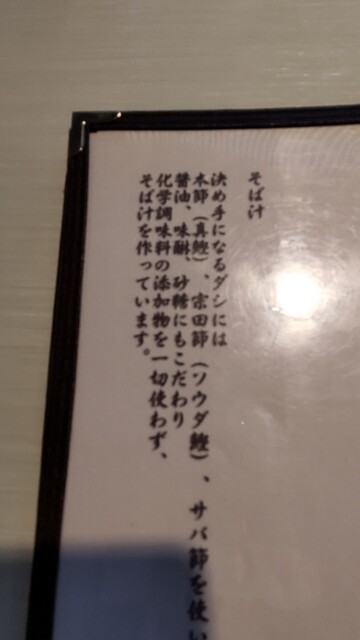 そば汁
決め手になるダシには
本節（真鰹）、宗田節（ソウダ鰹）、サバ節を使い
醤油、味醂、砂糖にもこだわり
化学調味料の添加物を一切使わず、
そば汁を作っています。